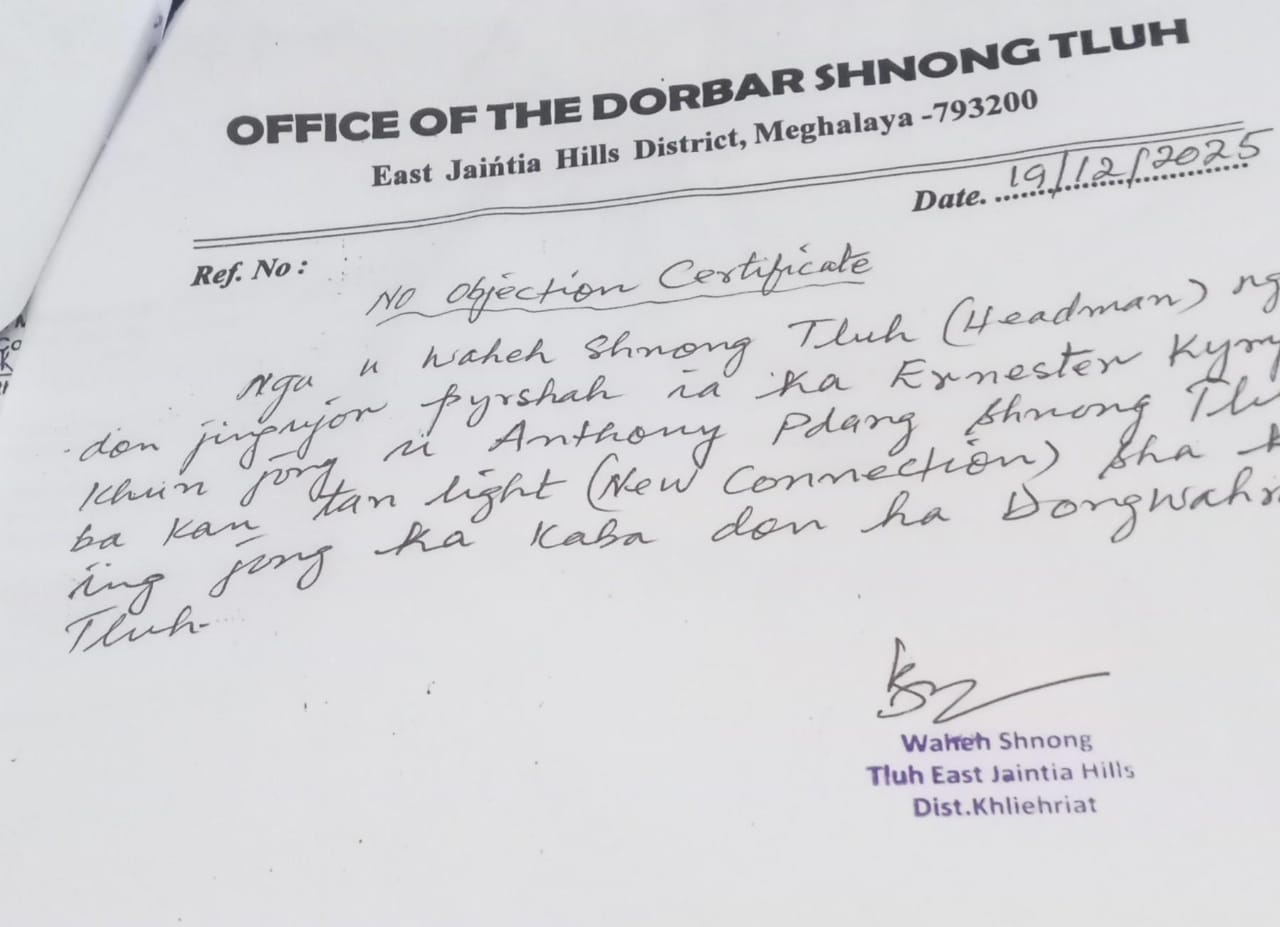 OFFICE OF THE DORBAR SHNONG TLUH
East Jaińtia Hills District, Meghalaya -793200
Date. 19/12/2025
Ref. No :
NO Objection Certificate
Nga u Waheh Shnong Tluh (Headman)
don jingujor pyrshah ia ka Ernester
Khun jong u Anthony Pdang Shnong
ba kan tan light (New Connection) sha
ïng jong ka kaba don ha
Tluh-
Waheh Shnong
Tluh East Jaintia Hills
Dist.Khliehriat